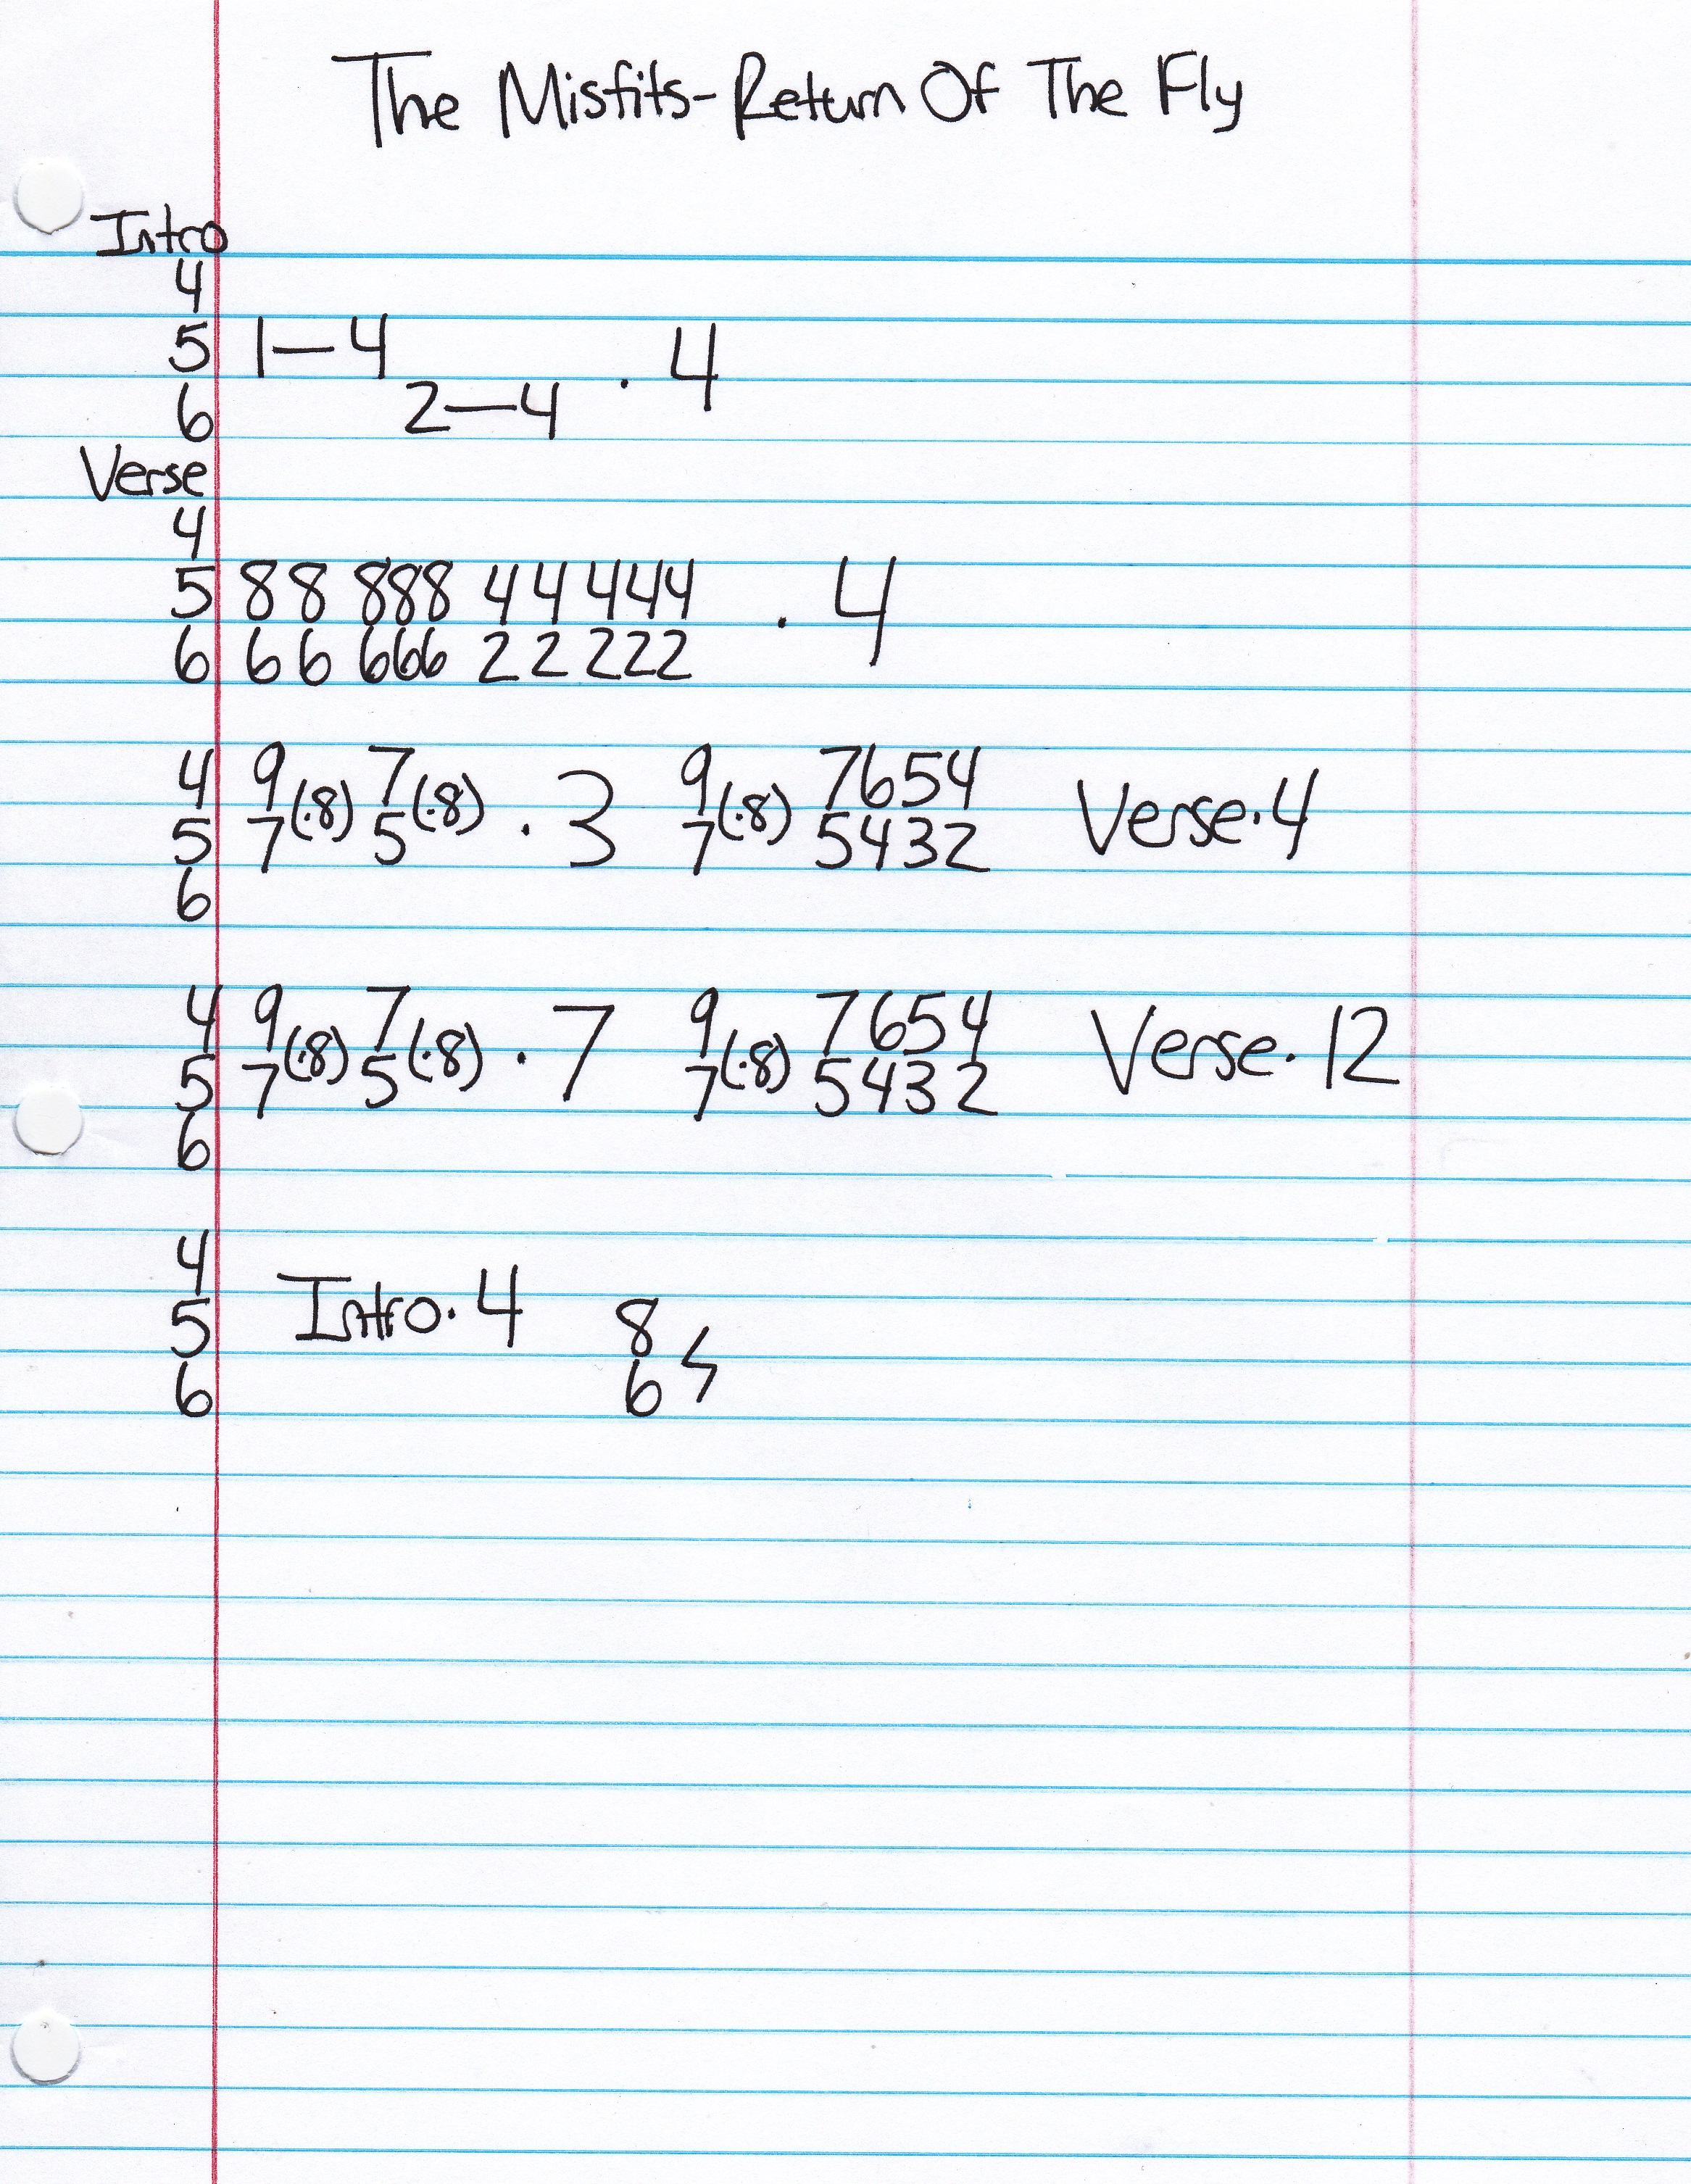 The Misfits-Return Of The Fly
Intro
4
5 1—4
6 2—4 . 4
Verse
4
5 88 888 44 444
6 66 666 22 222 . 4
4 9 7 9 7654
5 7(·8) 5(·8) . 3 7(·8) 5432 Verse·4
6
4 9 7 9 7654
5 7(·8) 5(·8) · 7 7(·8) 5432 Verse·12
6
4
5 Intro·4 8
6 6